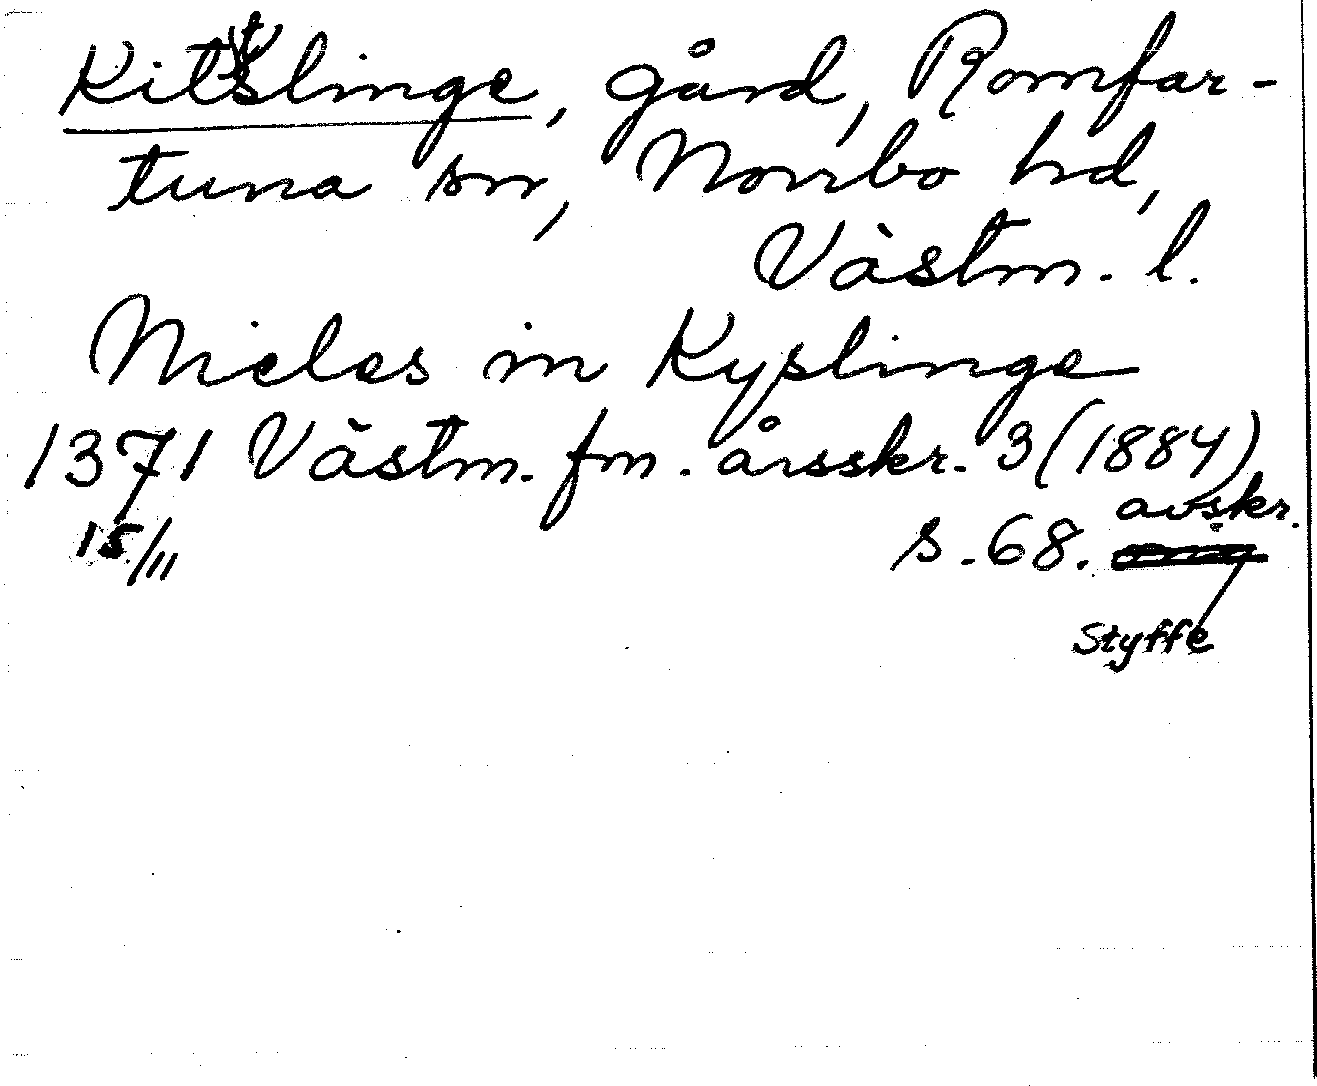 Kittslinge, gård, Romfar-
tuna sn, Norrbo hd,
Västm. l.
Niclas in Kyslinge
1371 Västm. fm. årsskr. 3 (1884)
15/11 s. 68. avskr.
Styffe